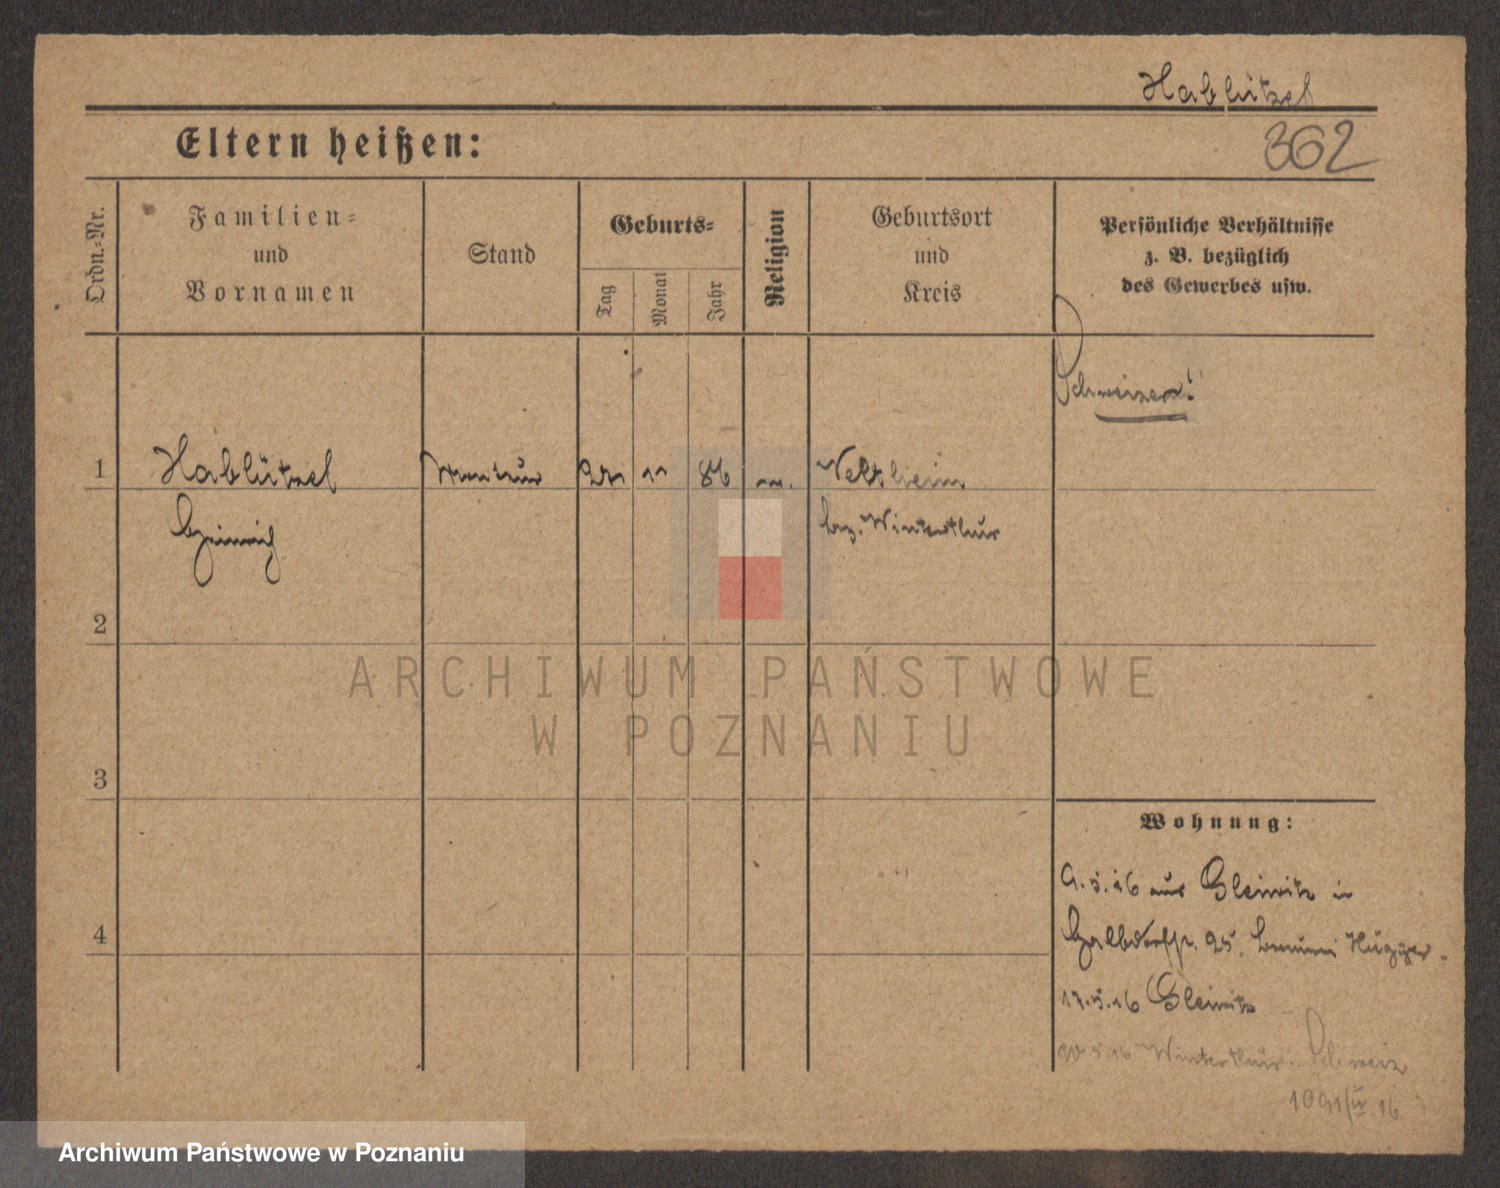 Hablützel
Eltern heißen:
362
Ordn.-Nr.
Familien-
und
Vornamen
Stand
Geburts-
Tag
Monat
Jahr
Religion
Geburtsort
und
Kreis
Persönliche Verhältnisse
z. B. bezüglich
des Gewerbes usw.
Schweizer!
1 Hablützel Monteur 11 86 Veltheim
Heinrich bez. Winterthur
2
ARCHIWUM PAŃSTWOWE
W POZNANIU
3
Wohnung:
9.5.16 aus Gleiwitz in
4
Halbdorfstr. 25, Brauerei Hugger.
17.5.16 Gleiwitz
20.5.16 Winterthur. Schweiz
Archiwum Państwowe w Poznaniu